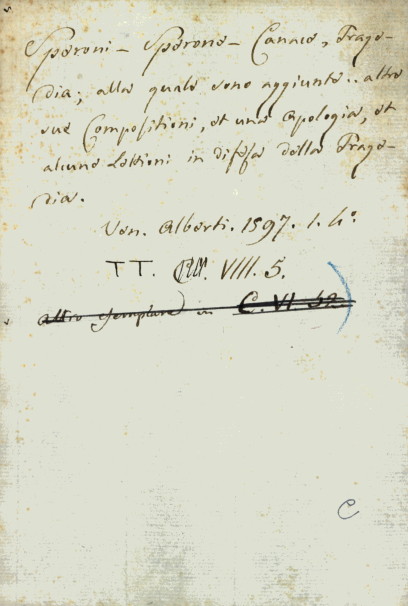 Speroni - Sperone - Canace, Trage-
dia; alla quale sono aggiunte.. altre
sue Compositioni, et una Apologia, et
alcune Lettioni in difesa della Trage-
dia.
Ven. Alberti. 1597. 1. 4°.
TT. VIII. 5.
altro esemplare in C. VI. 32
C